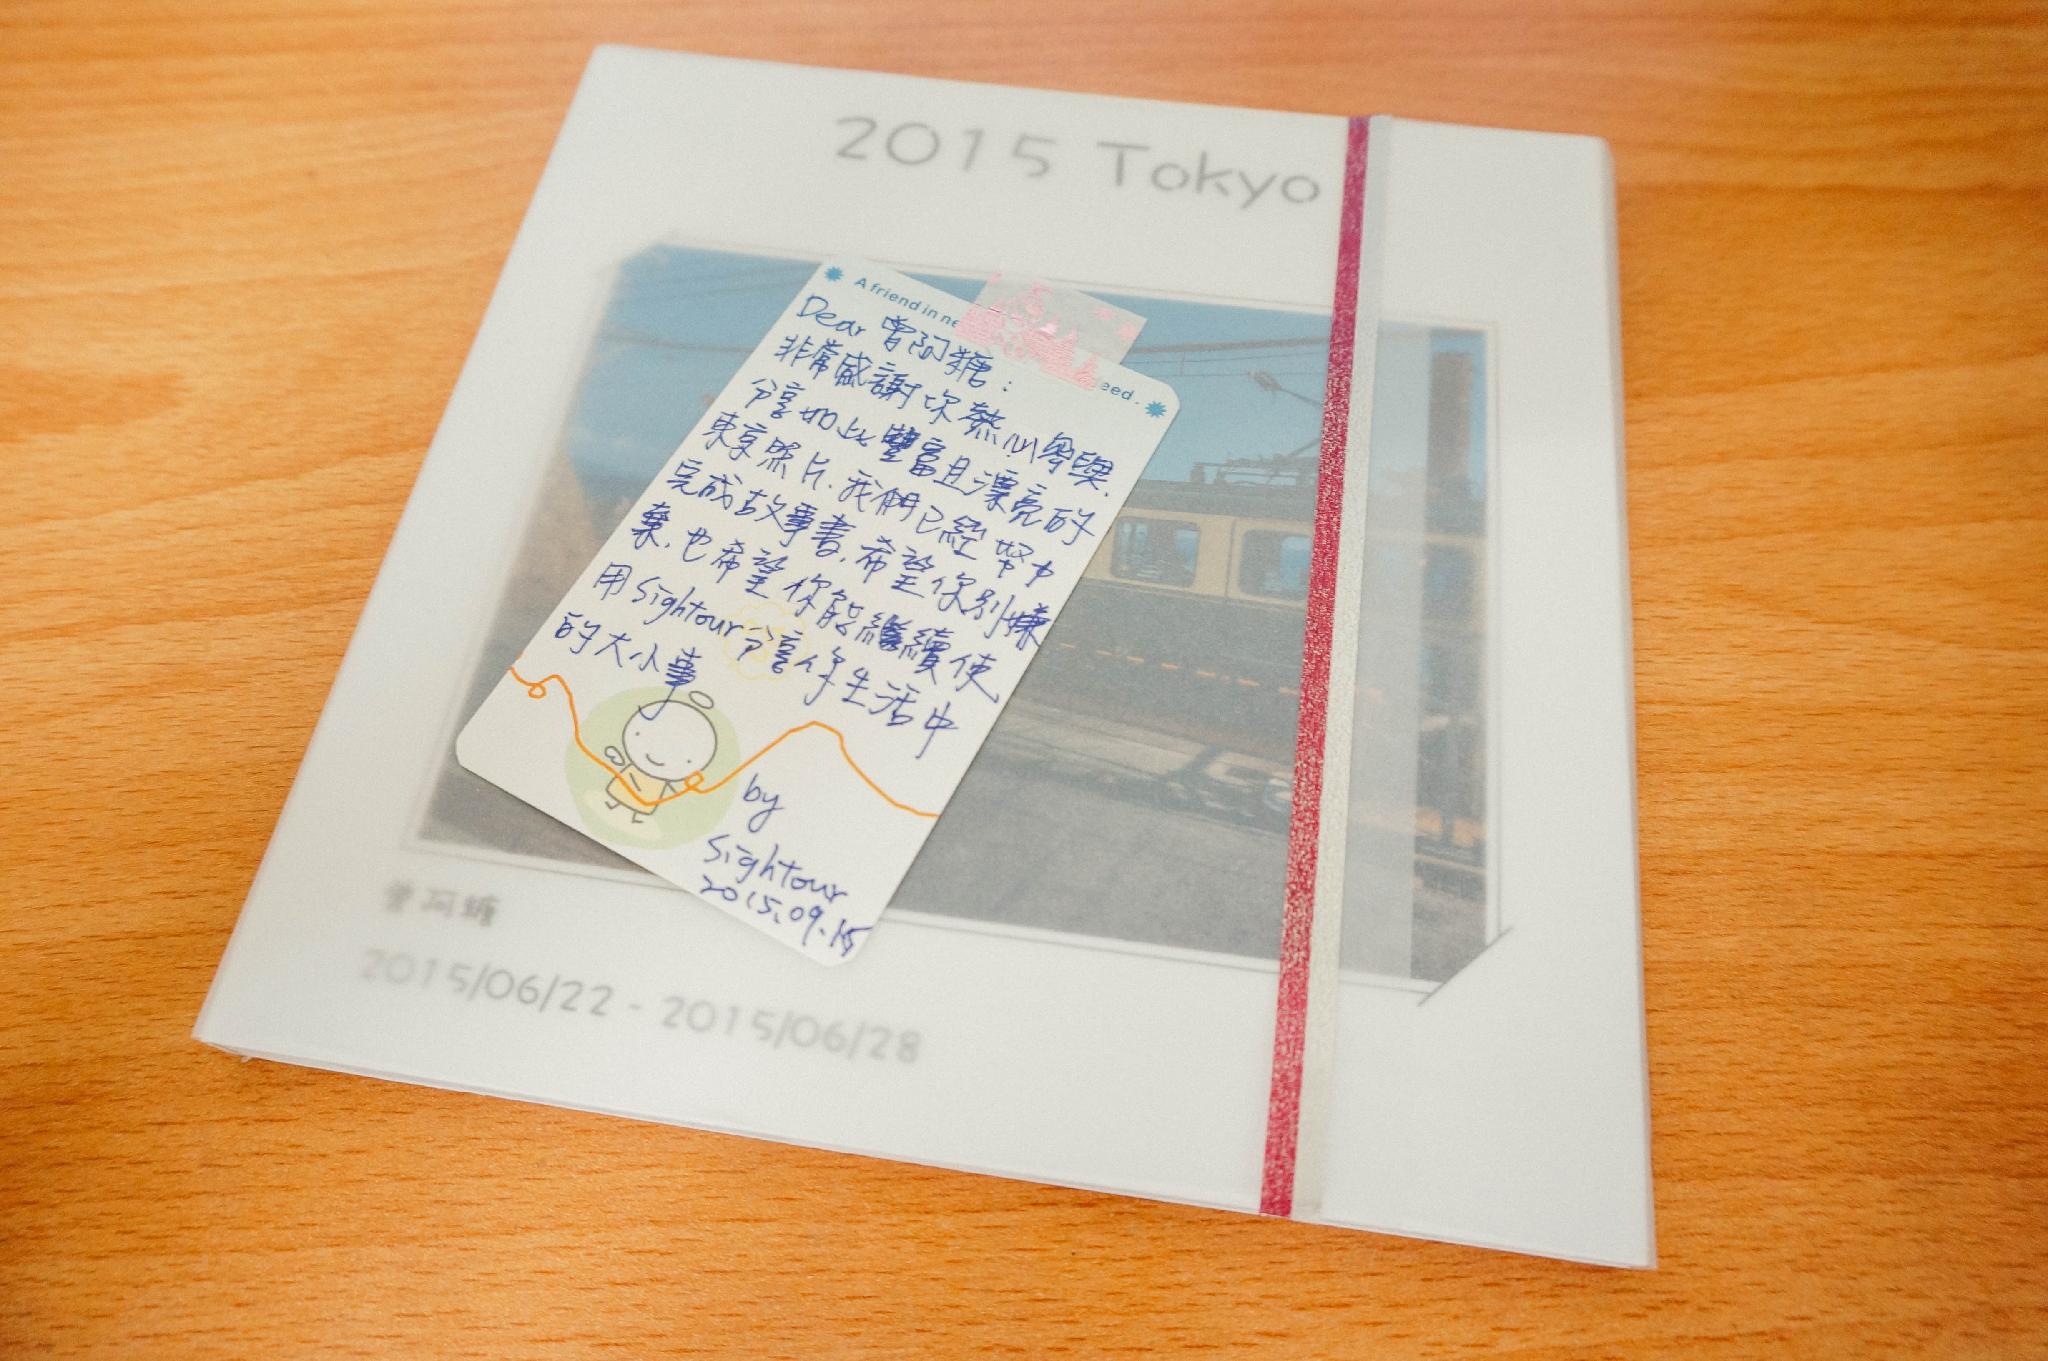 2015 Tokyo
A friend in ne eed.
Dear 曾阿糖:
非常感謝你熱心參與,
分享如此豐富且漂亮的
東京照片.我們已經努力
完成故事書,希望你別嫌
棄,也希望你能繼續使
用Sightour分享你生活中
的大小事
by
Sightour
2015.09.15
曾阿糖
2015/06/22 - 2015/06/28